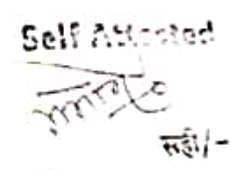 Self Attested
सही/-